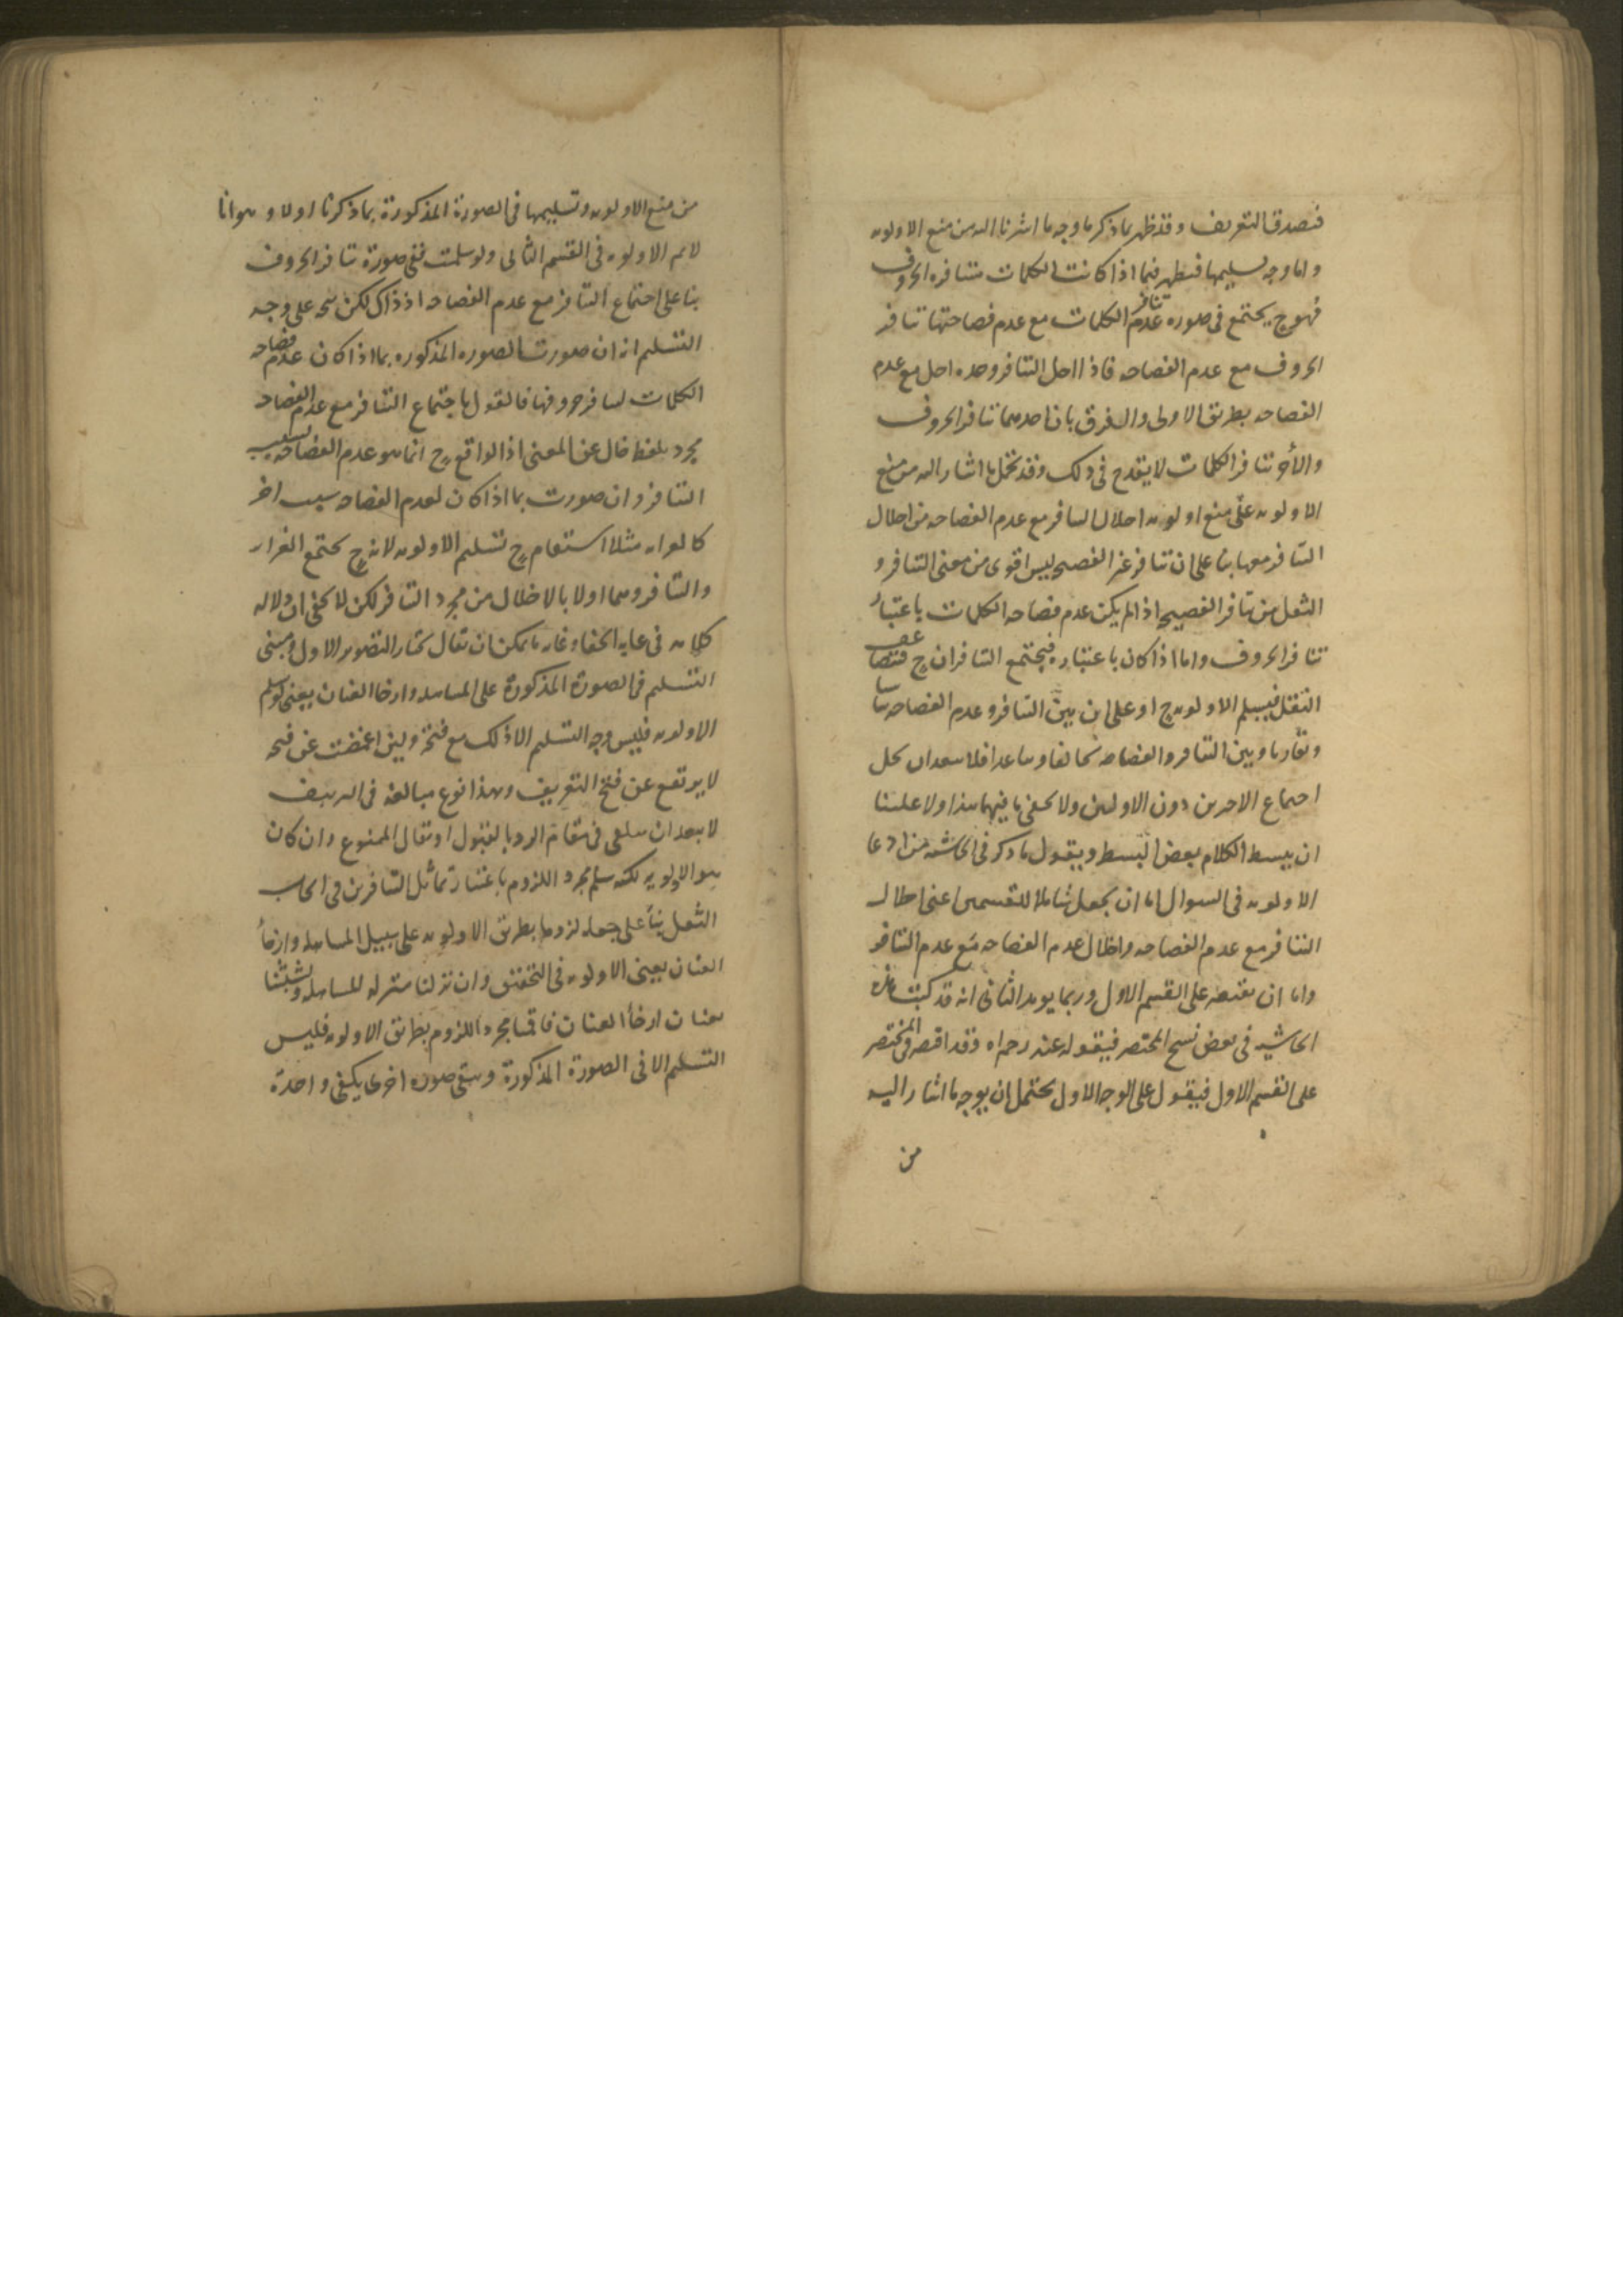 فيصدق التعريف وقد ظهر بما ذكر ما وجه ما اشرنا اليه من منع الاولويه
واما وجه تسليمها فيظهر فيما اذا كانت الكلمات متنافرة الحروف
فهو ح يجتمع في صوره عدم تنافر الكلمات مع عدم فصاحتها تنافر
الحروف مع عدم الفصاحه فاذا اخل التنافر وحده اخل مع عدم
الفصاحه بطريق الاولى والفرق بان احدهما تنافر الحروف
والأخر تنافر الكلمات لا يقدح في ذلك وقد يحمل ما اشار اليه من منع
الاولويه على منع اولويه اخلال التنافر مع عدم الفصاحه من اخلال
التنافر معها بناء على ان تنافر غير الفصيح ليس اقوى من معنى التنافر و
الثقل من تنافر الفصيح اذا لم يكن عدم فصاحه الكلمات باعتبار
تنافر الحروف واما اذا كان باعتباره فيجتمع التنافران ح فيتضاعف
الثقل فيسلم الاولويه ح او على ان بين التنافر وعدم الفصاحه تناسبا
وتقاربا وبين التنافر والفصاحه تخالفا وتباعدا فلا يبعد ان يخل
اجتماع الاخرين دون الاولين ولا يخفى ما فيهما هذا ولا علينا
ان نبسط الكلام بعض البسط ونقول ما ذكر في الحاشيه من ادعا
الاولويه في السوال اما ان يجعل شاملا للقسمين اعني اخلال
التنافر مع عدم الفصاحه واخلال عدم الفصاحه مع عدم التنافر
واما ان يقتصر على القسم الاول وربما يويد الثاني انه قد كتبت هذه
الحاشيه في بعض نسخ المختصر فيقوله عند رحمه الله وقد اقتصر في المختصر
على القسم الاول فيقول على الوجه الاول يحتمل ان يوجه ما اشار اليه
من
من منع الاولويه وتسليمها في الصورة المذكورة بما ذكرنا اولا وهو انا
لا نم الاولويه في القسم الثاني ولو سلمت ففي صورة تنافر الحروف
بنا على اجتماع التنافر مع عدم الفصاحه اذ ذاك لكن يتجه على وجه
التسليم انه ان صورت الصوره المذكوره بما اذا كان عدم فصاحه
الكلمات لتنافر حروفها فالقول باجتماع التنافر مع عدم الفصاحه
مجرد لفظ خال عن المعنى اذ الواقع ح انما هو عدم الفصاحه بسبب
التنافر وان صورت بما اذا كان لعدم الفصاحه سبب اخر
كالغرابه مثلا استقام ح تسليم الاولويه لانه ح يجتمع الغرابه
والتنافر وهما اولى بالاخلال من مجرد التنافر لكن لا يخفى ان دلاله
كلامه في غايه الخفا وغايه ما يمكن ان يقال نختار التصوير الاول ومبنى
التسليم في الصورة المذكورة على المساهله وارخا العنان يعني لو سلم
الاولويه فليس وجه التسليم الا ذلك مع قبحه ولئن اغمضت عن قبحه
لا يرتفع عن قبح التعريف وهذا نوع مبالغه في التزييف
لا يبعد ان يتلقى في مقام الرد بالقبول او يقال الممنوع وان كان
هو الاولويه لكنه سلم مجرد اللزوم باعتبار تماثل التنافرين في ايجاب
الثقل بناء على جعله لزوما بطريق الاولويه على سبيل المساهله وارخاء
العنان يعني الاولويه في التحقيق وان نزلنا منزله المساهله وتشبثنا
بعنان ارخاء العنان فاقمنا مجرد اللزوم بطريق الاولويه فليس
التسليم الا في الصورة المذكورة ويبقى صوره اخرى يكفي واحدة